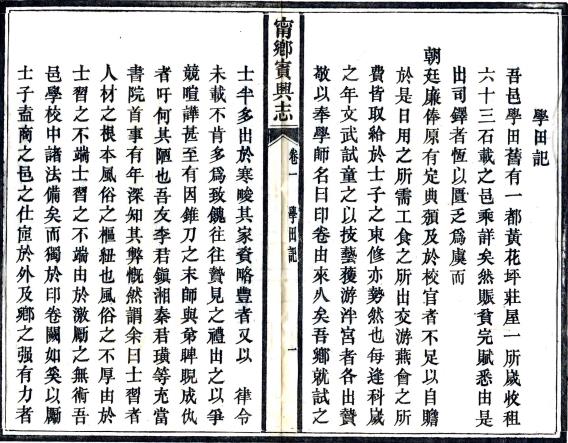 學田記
吾邑學田舊有一都黃花坪莊屋一所歲收租
六十三石載之邑乘詳矣然賑貧完賦悉由是
出司鐸者恆以匱乏爲虞而
朝廷廉俸原有定典頒及於校官者不足以自贍
於是日用之所需工食之所出交游燕會之所
費皆取給於士子之束修亦勢然也每逢科歲
之年文武試童之以技藝獲游泮宮者各出贄
敬以奉學師名曰印卷由來久矣吾鄉就試之
甯鄉賓興志
卷一 學田記 一
士半多出於寒畯其家資略豐者又以 律令
未載不肯多爲致餽往往贄見之禮出之以爭
競喧譁甚至有因錐刀之末師與弟睥睨成仇
者吁何其陋也吾友李君鎮湘秦君璜等充當
書院首事有年深知其弊慨然謂余曰士習者
人材之根本風俗之樞紐也風俗之不厚由於
士習之不端士習之不端由於激勵之無術吾
邑學校中諸法備矣而獨於印卷闕如奚以勵
士子盍商之邑之仕宦於外及鄉之强有力者